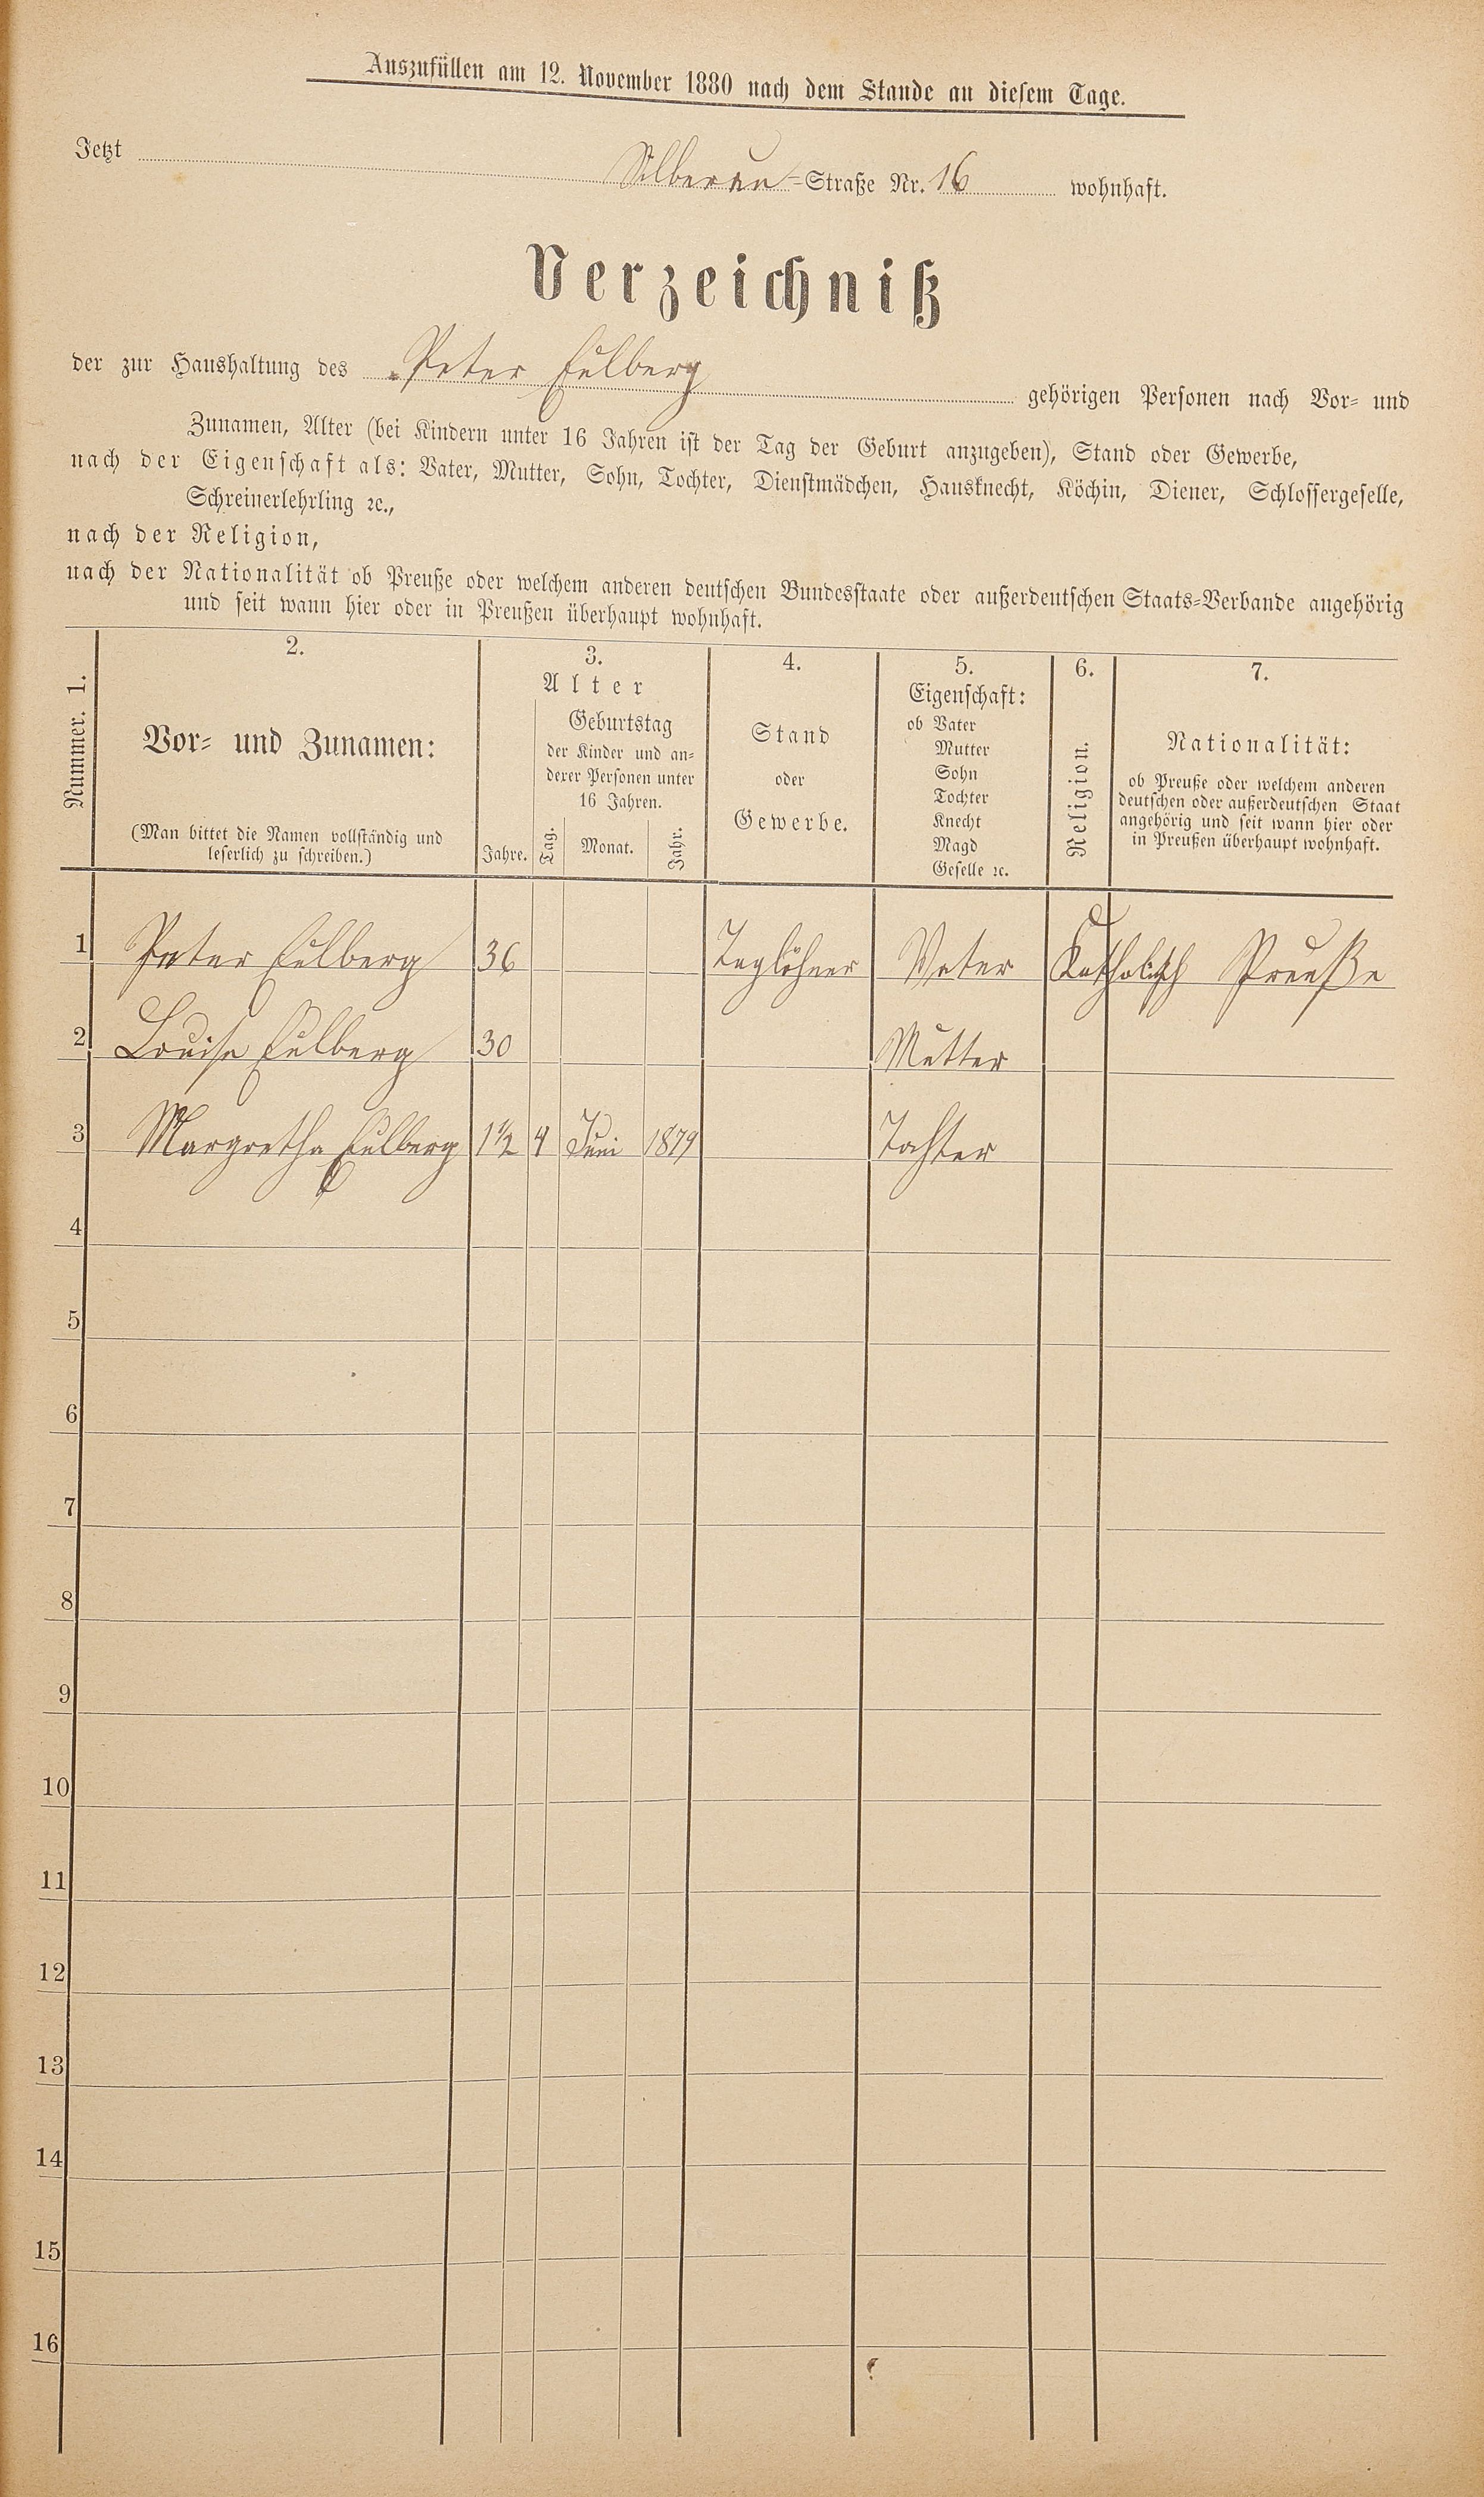 Auszufüllen am 12. November 1880 nach dem Stande an diesem Tage.
Jetzt Silberau-Straße Nr. 16 wohnhaft.
Verzeichniß
der zur Haushaltung des Peter Eulberg gehörigen Personen nach Vor- und
Zunamen, Alter (bei Kindern unter 16 Jahren ist der Tag der Geburt anzugeben), Stand oder Gewerbe,
nach der Eigenschaft als: Vater, Mutter, Sohn, Tochter, Dienstmädchen, Hausknecht, Köchin, Diener, Schlossergeselle,
Schreinerlehrling ꝛc.,
nach der Religion,
nach der Nationalität ob Preuße oder welchem anderen deutschen Bundesstaate oder außerdeutschen Staats-Verbande angehörig
und seit wann hier oder in Preußen überhaupt wohnhaft.
Nummer. 1.
2.
Vor- und Zunamen:
(Man bittet die Namen vollständig und
leserlich zu schreiben.)
3.
Alter
Jahre.
Geburtstag
der Kinder und an-
derer Personen unter
16 Jahren.
Tag. Monat. Jahr.
4.
Stand
oder
Gewerbe.
5.
Eigenschaft:
ob Vater
Mutter
Sohn
Tochter
Knecht
Magd
Geselle ꝛc.
6.
Religion.
7.
Nationalität:
ob Preuße oder welchem anderen
deutschen oder außerdeutschen Staat
angehörig und seit wann hier oder
in Preußen überhaupt wohnhaft.
1 Peter Eulberg 36 Taglöhner Vater Katholisch Preuße
2 Louise Eulberg 30 Mutter
3 Margretha Eulberg 1 1/2 4 Juni 1879 Tochter
4
5
6
7
8
9
10
11
12
13
14
15
16